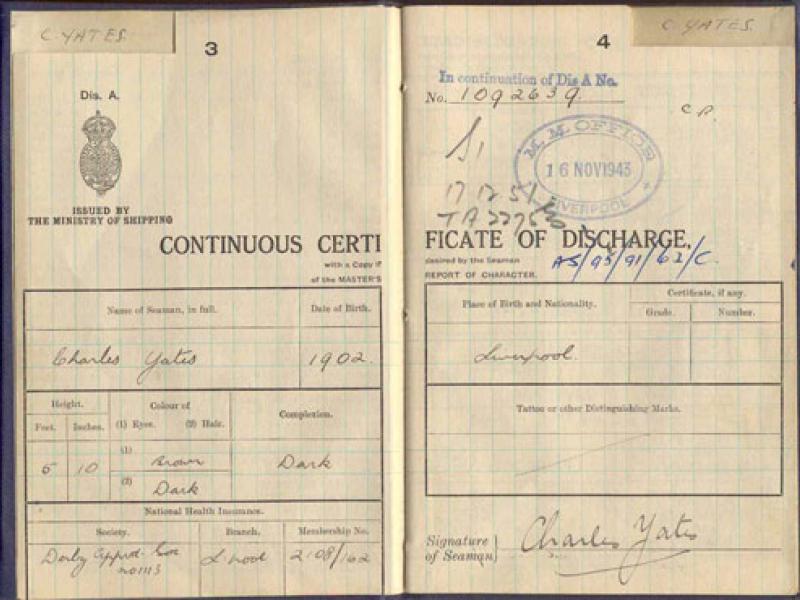 C. YATES.
3
Dis. A.
ISSUED BY
THE MINISTRY OF SHIPPING
CONTINUOUS CERTI
with a Copy if
of the MASTER'S
Name of Seaman, in full.
Date of Birth.
Charles Yates
1902.
Height.
Colour of
Complexion.
Feet.
Inches.
(1) Eyes. (2) Hair.
5
10
(1)
Brown
(2)
Dark
Dark
National Health Insurance.
Society.
Branch.
Membership No.
Derby Appd. Soc
no 1113
L'pool
2108/162
C. YATES.
4
In continuation of Dis A No.
No. 1092639.
M. M. OFFICE
16 NOV 1943
LIVERPOOL
17 12 51
FICATE OF DISCHARGE,
desired by the Seaman
REPORT OF CHARACTER.
AS/95/91/62/C.
Place of Birth and Nationality.
Certificate, if any.
Grade.
Number.
Liverpool.
Tattoo or other Distinguishing Marks.
Signature
of Seaman
Charles Yates